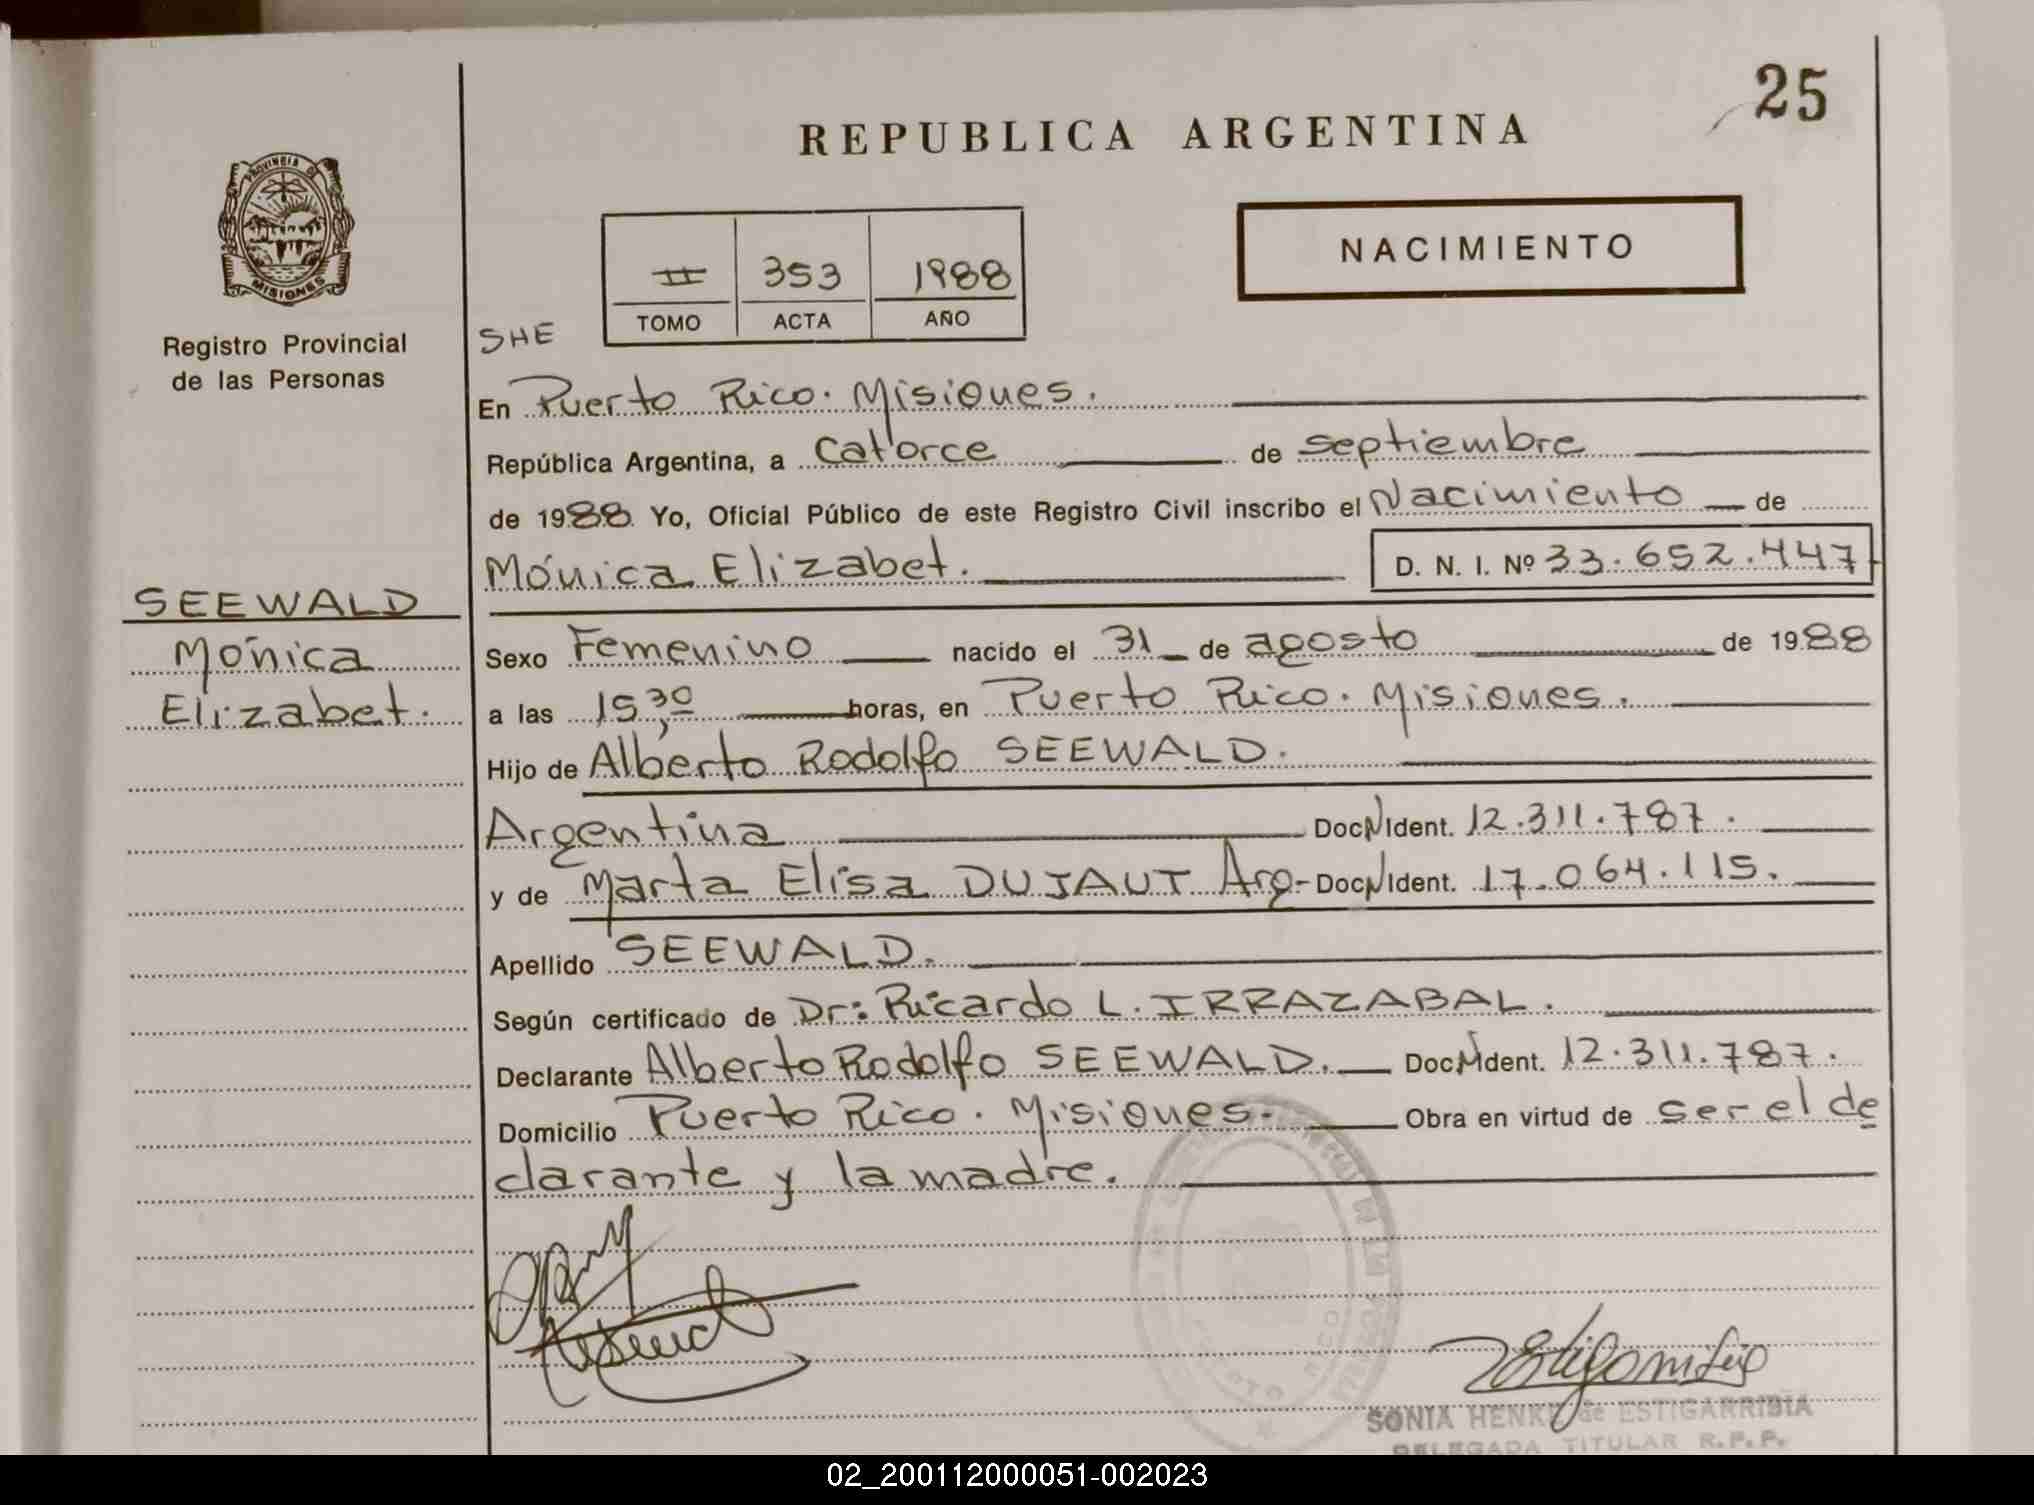 25
REPUBLICA ARGENTINA
PROVINCIA DE
MISIONES
Registro Provincial
de las Personas
II 353 1988
TOMO ACTA AÑO
NACIMIENTO
SHE
En Puerto Rico. Misiones.
República Argentina, a Catorce de septiembre
de 1988 Yo, Oficial Público de este Registro Civil inscribo el Nacimiento de
Mónica Elizabet. D. N. I. Nº 33.652.447
SEEWALD
Mónica
Elizabet.
Sexo Femenino nacido el 31 de agosto de 1988
a las 15,30 horas, en Puerto Rico. Misiones.
Hijo de Alberto Rodolfo SEEWALD.
Argentina Doc N Ident. 12.311.787.
y de Marta Elisa DUJAUT Arg- Doc N Ident. 17.064.115.
Apellido SEEWALD.
Según certificado de Dr: Ricardo L. IRRAZABAL.
Declarante Alberto Rodolfo SEEWALD. Doc N Ident. 12.311.787.
Domicilio Puerto Rico. Misiones. Obra en virtud de ser el de
clarante y la madre.
PUERTO RICO
SONIA HENKE de ESTIGARRIBIA
DELEGADA TITULAR R.P.P.
02_200112000051-002023